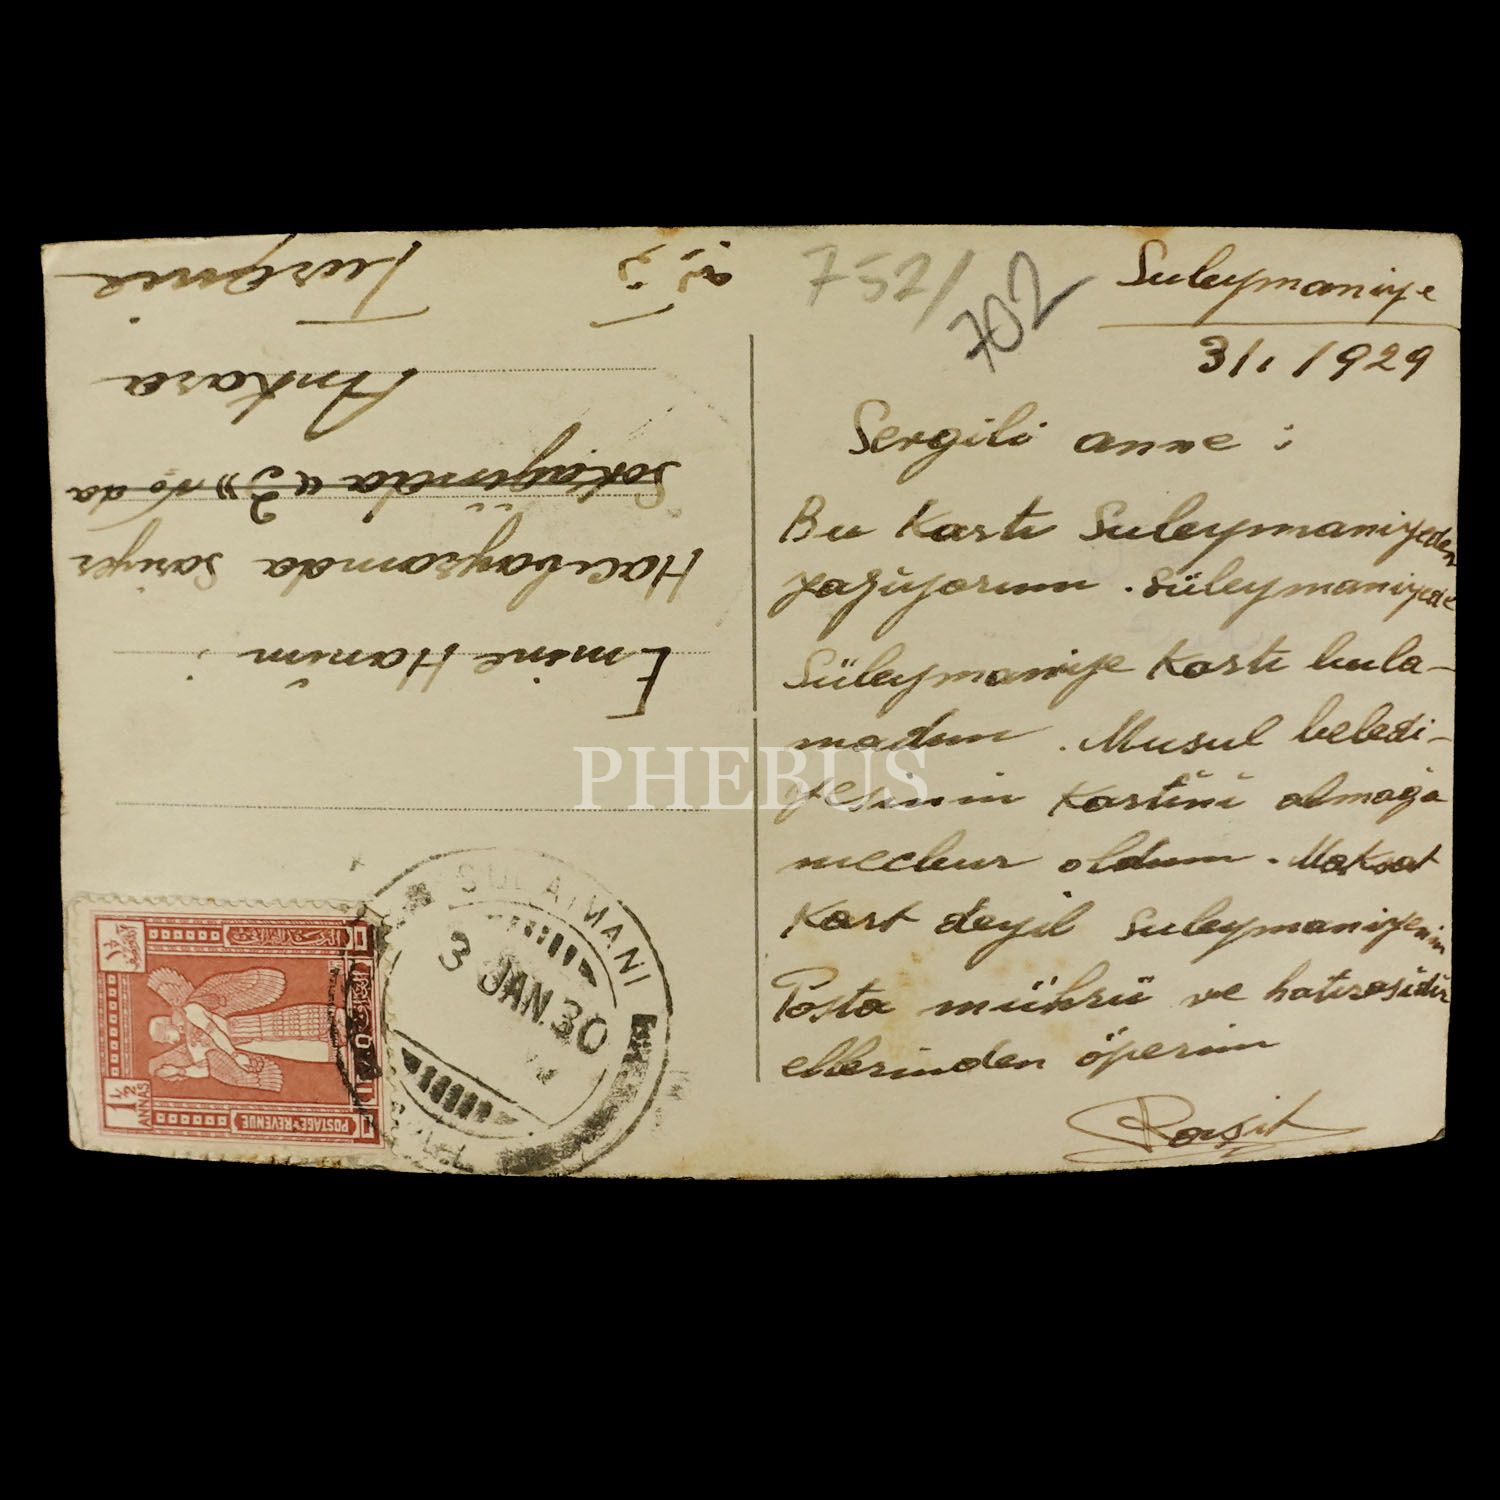 Suleymaniye
3/1/1929
Sevgili anne :
Bu Kartı Suleymaniyeden
yazıyorum . Süleymaniyede
Süleymaniye Kartı bula-
madım . Musul beledi-
yesinin Kartını almağa
mecbur oldum . Maksat
Kart deyil Suleymaniyenin
Posta mührü ve hatırasıdır
ellerinden öperim
Raşit
752/
702
Emine Hanım :
Hacıbayramda Sarıyer
Sokağında «3» No da
Ankara
Turkiye
SULAIMANI
3 JAN.30
POSTAGE & REVENUE
1½
ANNAS
PHEBUS